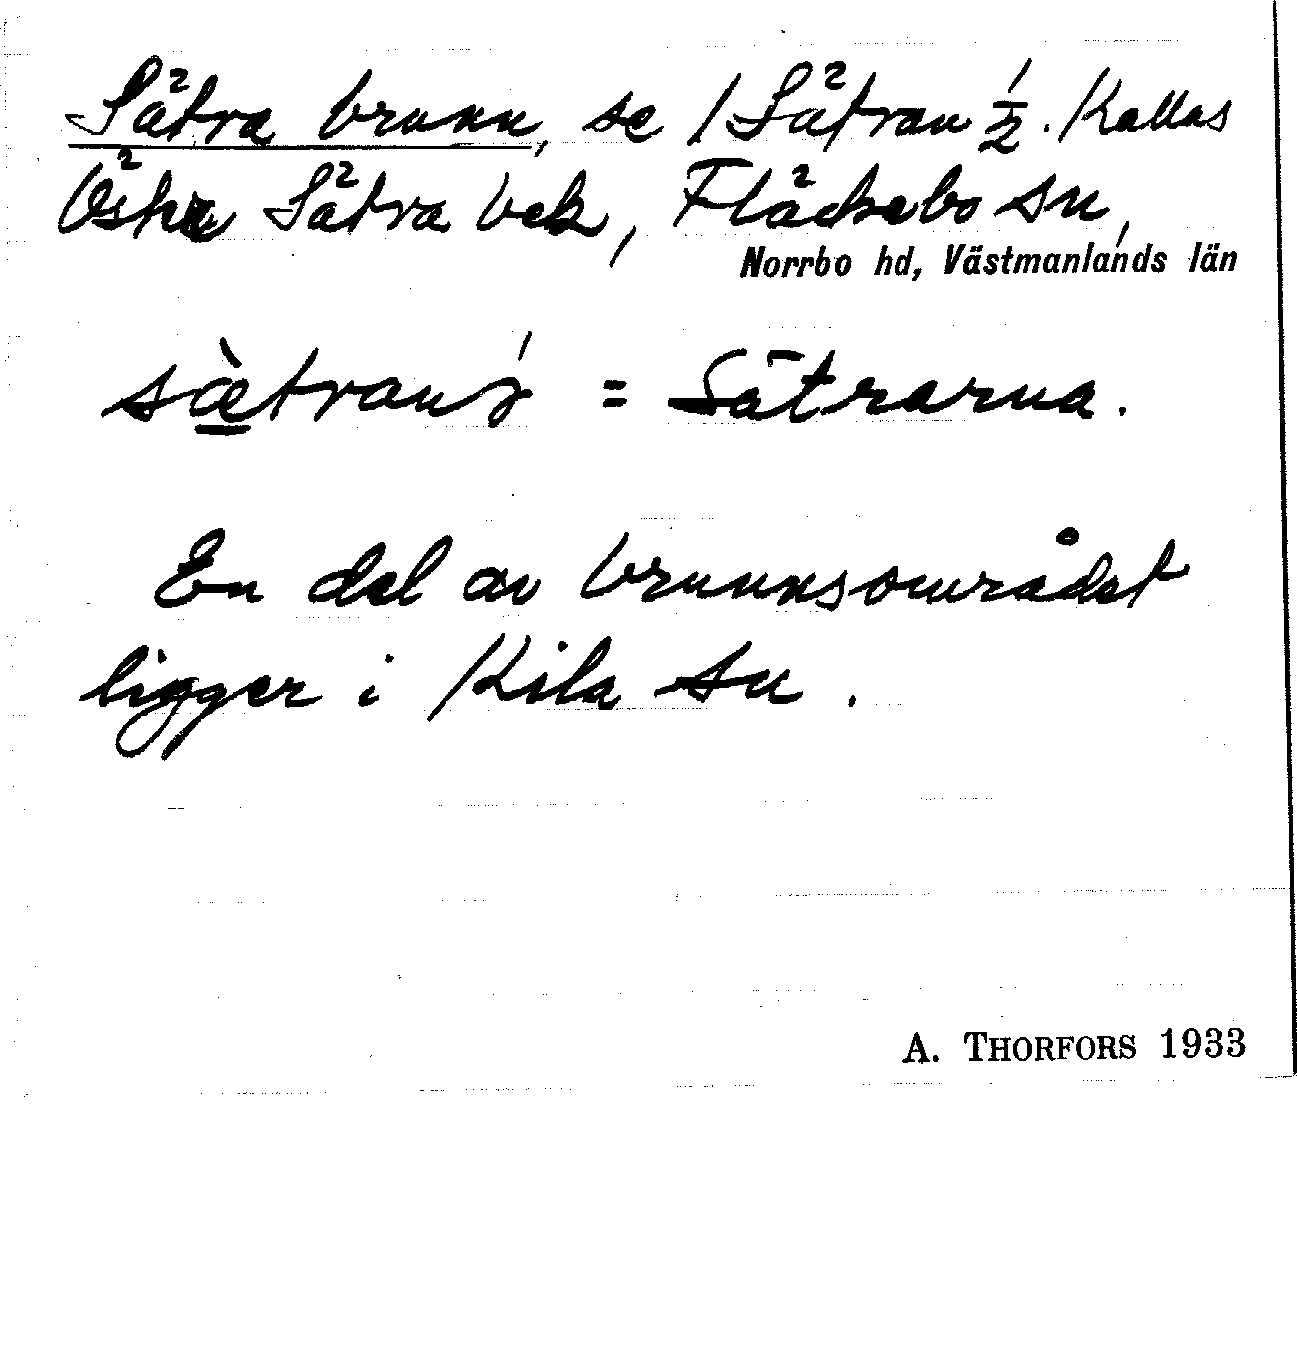 Sätra brunn, se /Sätran 1/2. Kallas
Östra Sätra bek, Fläckebo sn,
Norrbo hd, Västmanlands län
sætran = Sätrarna.
En del av brunnsområdet
ligger i Kila sn.
A. THORFORS 1933